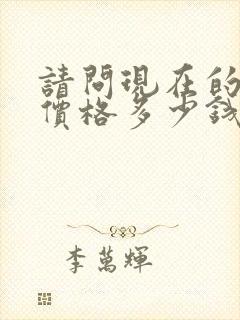 請問現在的
價格多少錢
李萬輝